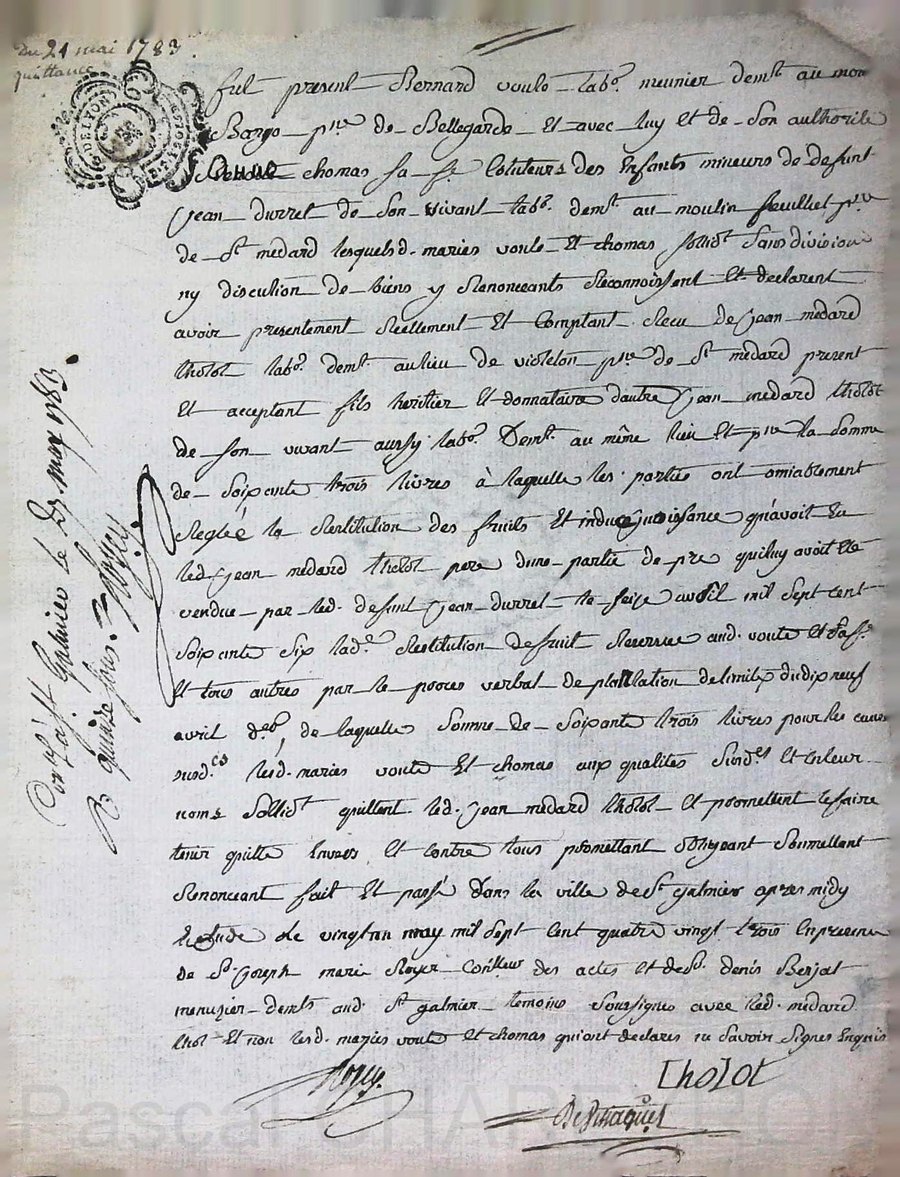 Du 21 mai 1783.
quittance
DE LYON
fut present Bernard voute lab.r meunier dem.t au mou
Barge p.sse de Bellegarde et avec luy et de son authorité
chomas sa f.e cotuteurs des enfants mineurs de defunt
jean durret de son vivant lab.r dem.t au moulin feuillet p.sse
de S.t medard lesquels d. mariés voute et chomas sollid.t sans division
ny discution de biens y renonceants reconnoissent et declarent
avoir presentement reellement et comptant recu de jean medard
tholot lab.r dem.t au lieu de violeton p.sse de S.t medard present
et acceptant fils heritier et donnataire dautre jean medard tholot
de son vivant aussy lab.r dem.t au même lieu et p.sse la somme
de soixante trois livres à laquelle les parties ont amiablement
reglée la restitution des fruits et indue jouissance qu'avoit eu
led. jean medard tholot pere dune partie de pré qui luy avoit été
vendue par led. defunt jean durret le seize avril mil sept cent
soixante six lad.e restitution de fruit reservée aud. voute et sa f.e
et tous autres par le proces verbal de plantation de limites du dix neuf
avril d.er, de laquelle somme de soixante trois livres pour les causes
susd.es lesd. mariés voute et chomas aux qualités susd.es et en leur
noms sollid.t quittent led. jean medard tholot et promettent le faire
tenir quitte envers et contre tous promettant obligeant soumettant
renonceant fait et passé dans la ville de S.t galmier apres midy
etude le vingt un may mil sept cent quatre vingt trois en presence
de S.r joseph marie royer con.lleur des actes et de S.r denis Berjat
menuzier dem.ts aud. S.t galmier temoins soussignés avec led. medard
tholot et non lesd. mariés voute et chomas qui ont declarés ne savoir signer enquis
Royer
tholot
Con.lé à S.t Galmier le 23 may 1783.
R quinze sous. Royer
Pascal CHARETHON